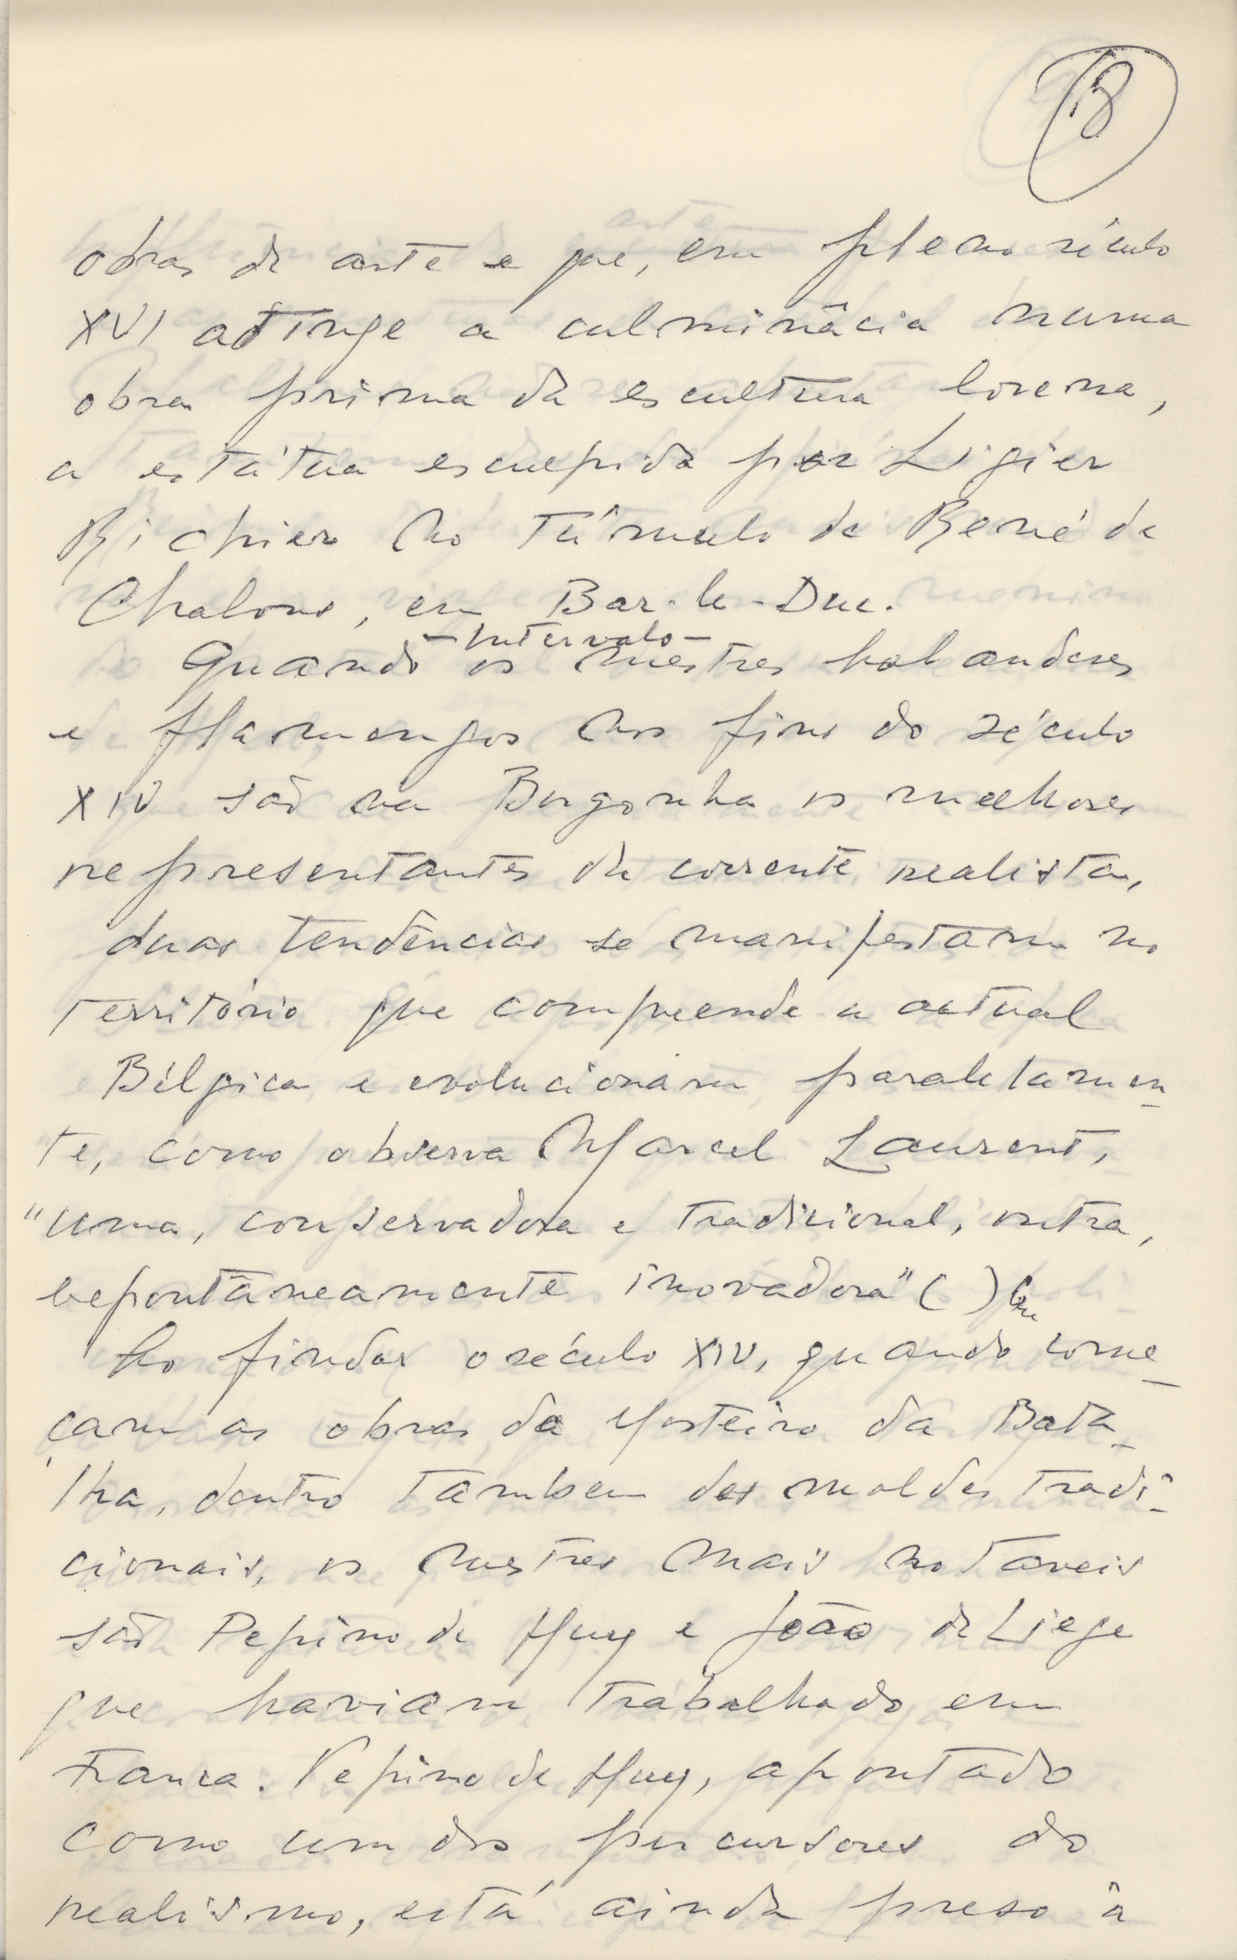 18
obras de arte e que, em pleno século
XVI atinge a culminância numa
obra prima da escultura lorena,
a estátua esculpida por Ligier
Richier no túmulo de René de
Chalons, em Bar-le-Duc.
-Intervalo-
Quando os mestres holandeses
e flamengos nos fins do século
XIV são na Borgonha os melhores
representantes da corrente realista,
duas tendências se manifestam no
território que compreende a actual
Bélgica e evolucionam paralelamen-
te, como observa Marcel Laurent,
"uma, conservadora e tradicional, outra,
espontâneamente inovadora" ( )
Ao findar o século XIV, quando come-
çam as obras do Mosteiro da Bata-
lha, dentro tambem dos moldes tradi-
cionais, os mestres mais notaveis
são Pepino de Huy e João de Liege
que haviam trabalhado em
França. Pepino de Huy, apontado
como um dos percursores do
realismo, está ainda preso à